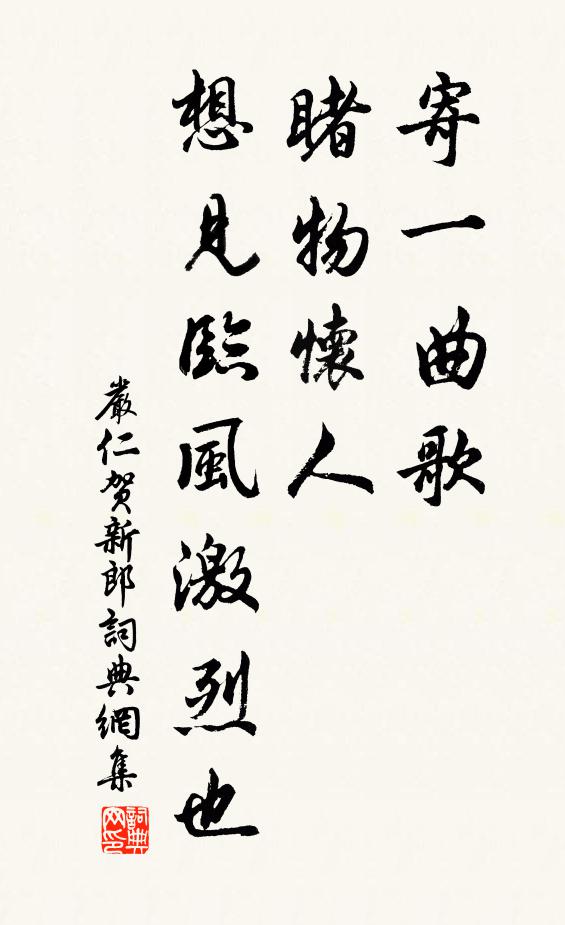 寄一曲歌
睹物懷人
想見臨風激烈也
嚴仁賀新郎詞典網集
詞典
网印